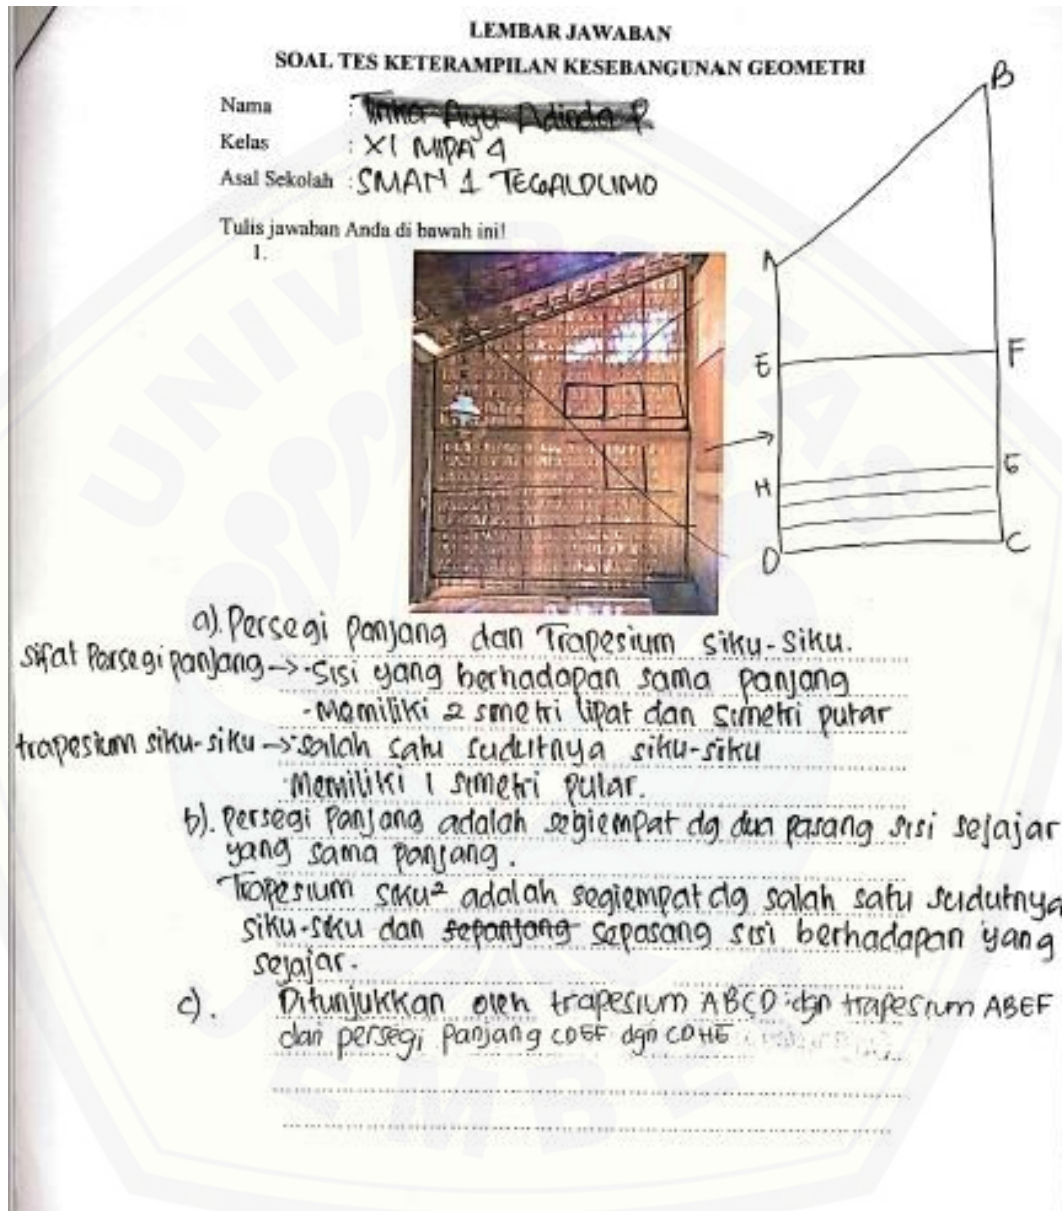 LEMBAR JAWABAN
SOAL TES KETERAMPILAN KESEBANGUNAN GEOMETRI
Nama :
Kelas : XI MIPA 4
Asal Sekolah : SMAN 1 TEGALDLIMO
Tulis jawaban Anda di bawah ini!
1.
B
A
E
F
H
G
D
C
a). Persegi Panjang dan Trapesium siku-siku.
sifat Persegi panjang -> - Sisi yang berhadapan sama panjang
- Memiliki 2 smetri lipat dan simetri putar
trapesium siku-siku -> - salah satu sudutnya siku-siku
- Memiliki 1 simetri putar.
b). Persegi Panjang adalah segiempat dg dua pasang sisi sejajar
yang sama panjang.
Trapesium siku² adalah segiempat dg salah satu sudutnya
siku-siku dan sepanjang sepasang sisi berhadapan yang
sejajar.
c). Ditunjukkan oleh trapesium ABCD dgn trapesium ABEF
dan persegi panjang CDEF dgn CDHG
UNIVERSITAS
JEMBER